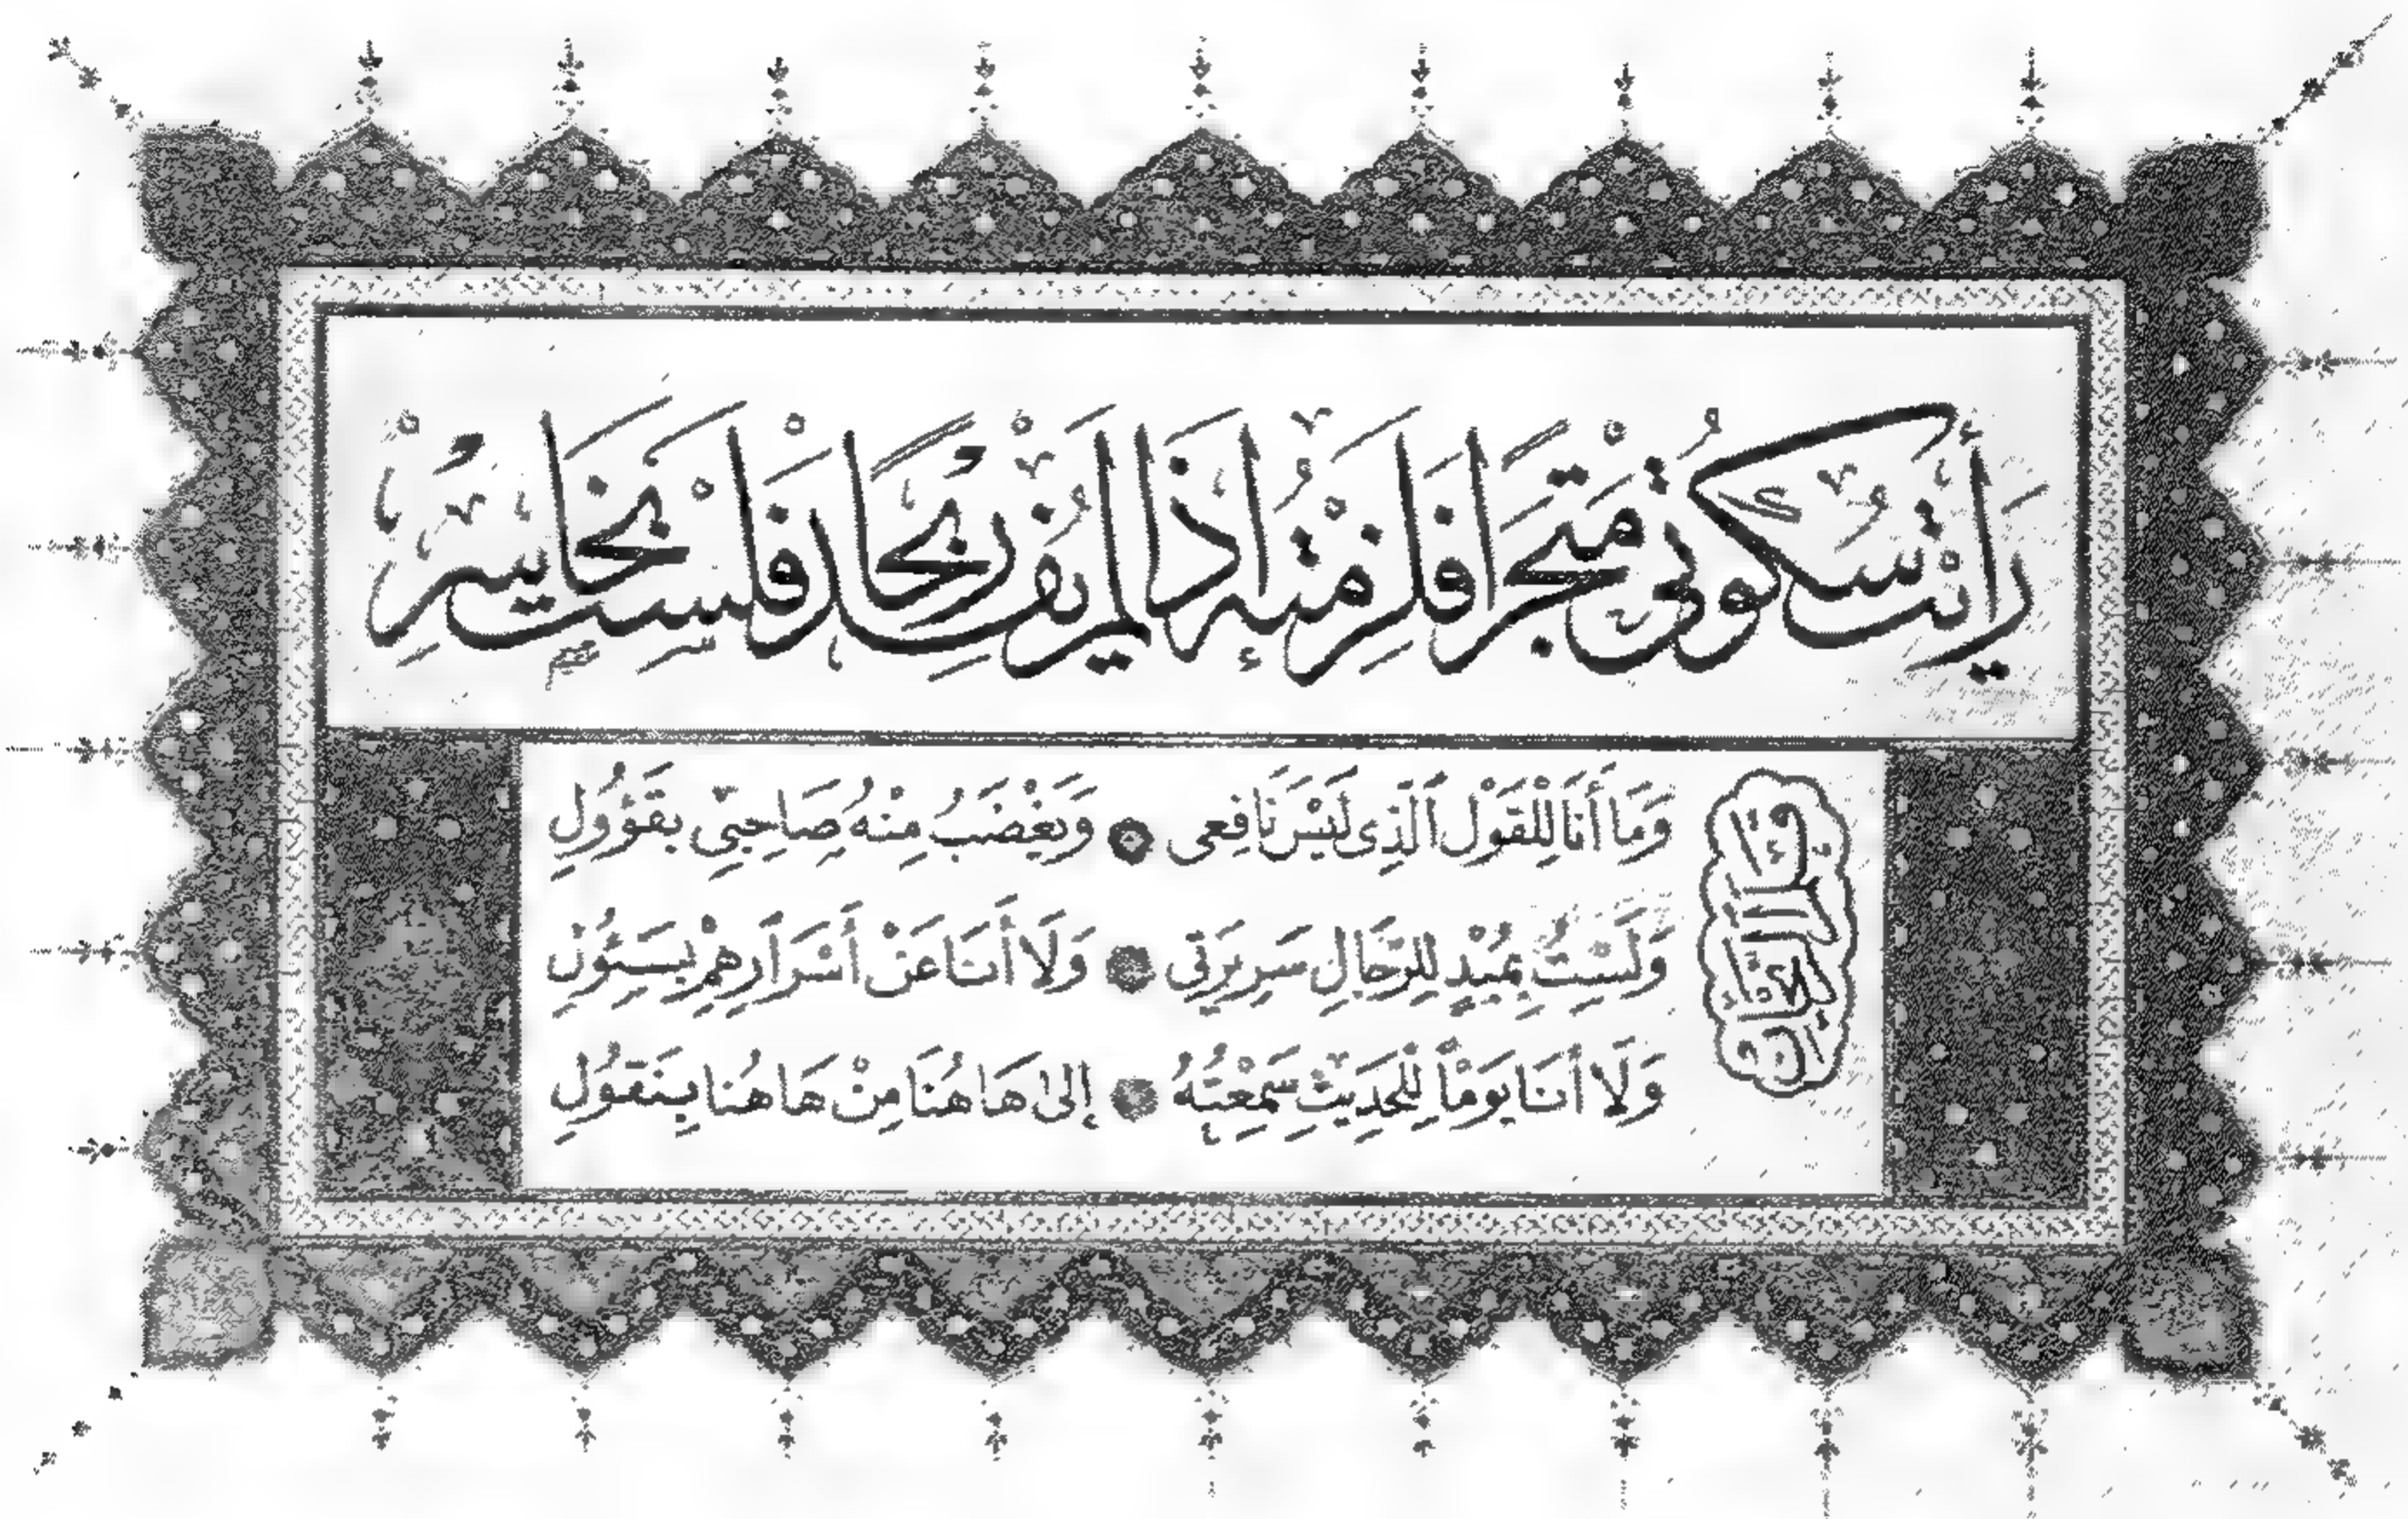 رَأَيْتُ سُكُوتِي مَتْجَرًا فَلَزِمْتُهُ إِذَا لَمْ يُفِدْ رِبْحًا فَلَسْتُ بِخَاسِرٍ
وَمَا أَنَا لِلْقَوْلِ الَّذِى لَيْسَ نَافِعِى وَيَغْضَبُ مِنْهُ صَاحِبِى بِقَؤُولِ
وَلَسْتُ بِمُبْدٍ لِلرِّجَالِ سَرِيرَتِى وَلَا أَنَا عَنْ أَسْرَارِهِمْ بِسَئُولِ
وَلَا أَنَا يَوْمًا لِلْحَدِيثِ سَمِعْتُهُ إِلىٰ هَا هُنَا مِنْ هَا هُنَا بِنَقُولِ